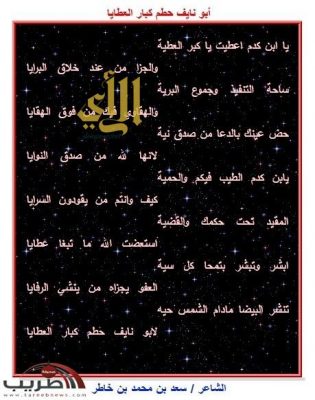 أبو نايف حطم كبار العطايا
يا ابن كدم اعطيت يا كبر العطية
والجزا من عند خلاق البرايا
ساحة التنفيذ وجموع البرية
والهقاوي فيك من فوق الهقايا
حض عينك بالدعا من صدق نية
لانها لله من صدق النوايا
يابن كدم الطيب فيكم والحمية
كيف وانتم من يقودون السرايا
المقيد تحت حكمك والقضية
استعضت الله ما تبغا عطايا
ابشر وتبشر بتمحا كل سية
العفو يجزاه من ينشي الرفايا
تنشر البيضا مادام الشمس حيه
لابو نايف حطم كبار العطايا
الرأي
الشاعر / سعد بن محمد بن خاطر
صحيفة
طريب
www.tareebnews.com